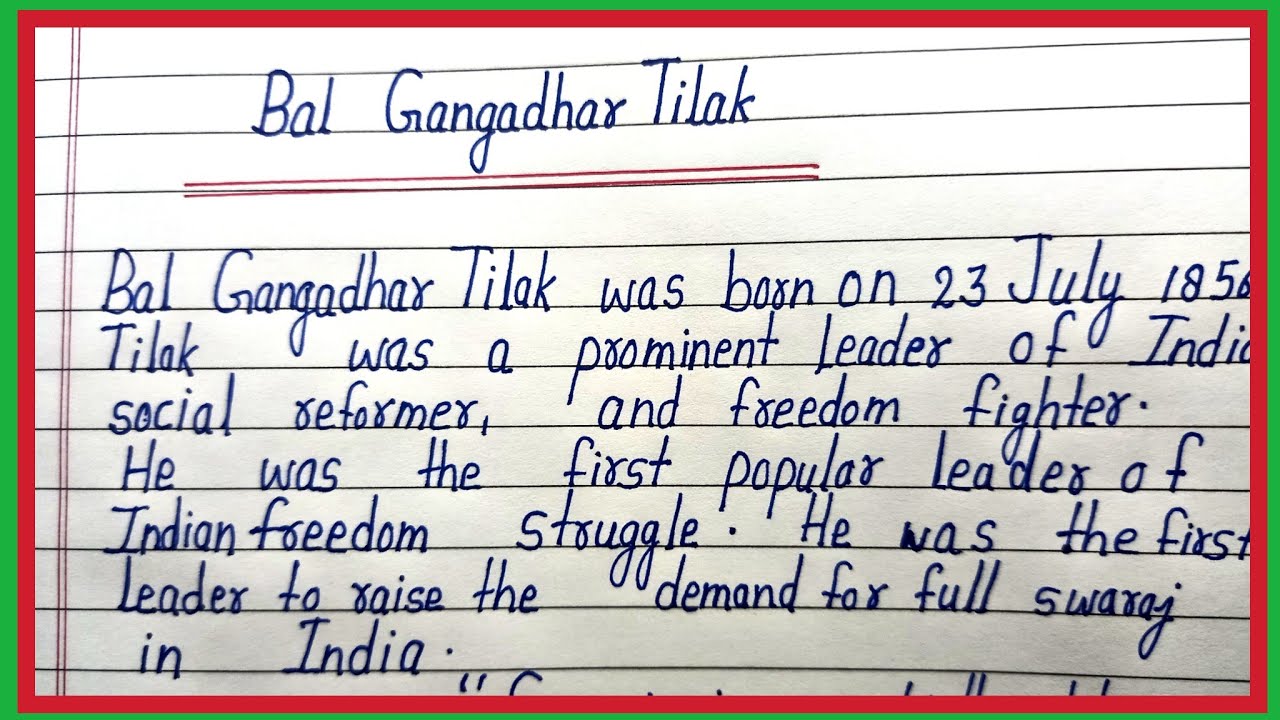 Bal Gangadhar Tilak
Bal Gangadhar Tilak was born on 23 July 1856
Tilak was a prominent leader of India
social reformer, and freedom fighter.
He was the first popular leader of
Indian freedom struggle. He was the first
leader to raise the demand for full swaraj
in India.